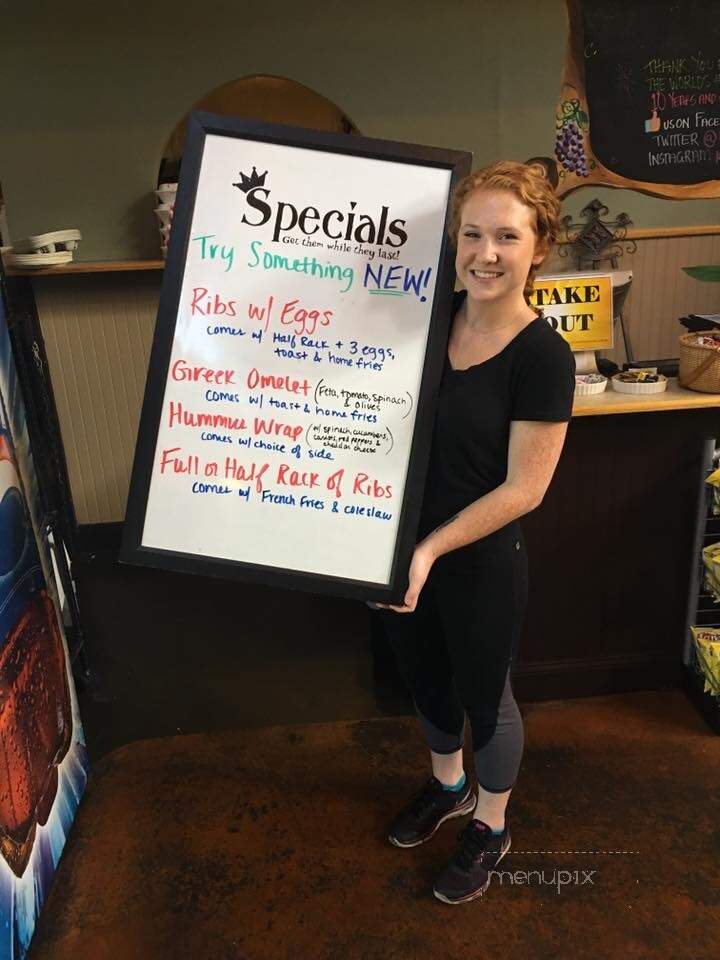 Specials
Get them while they last!
Try Something NEW!
Ribs w/ Eggs
comes w/ Half Rack + 3 eggs,
toast & home fries
Greek Omelet (Feta, tomato, spinach
& olives)
comes w/ toast & home fries
Hummus Wrap (w/ spinach, cucumbers,
carrots, red peppers &
cheddar cheese)
comes w/ choice of side
Full or Half Rack of Ribs
comes w/ French Fries & coleslaw
THANK YOU
THE WORLDS
10 YEARS AND
US ON FACE
TWITTER @
INSTAGRAM
TAKE
OUT
menupix